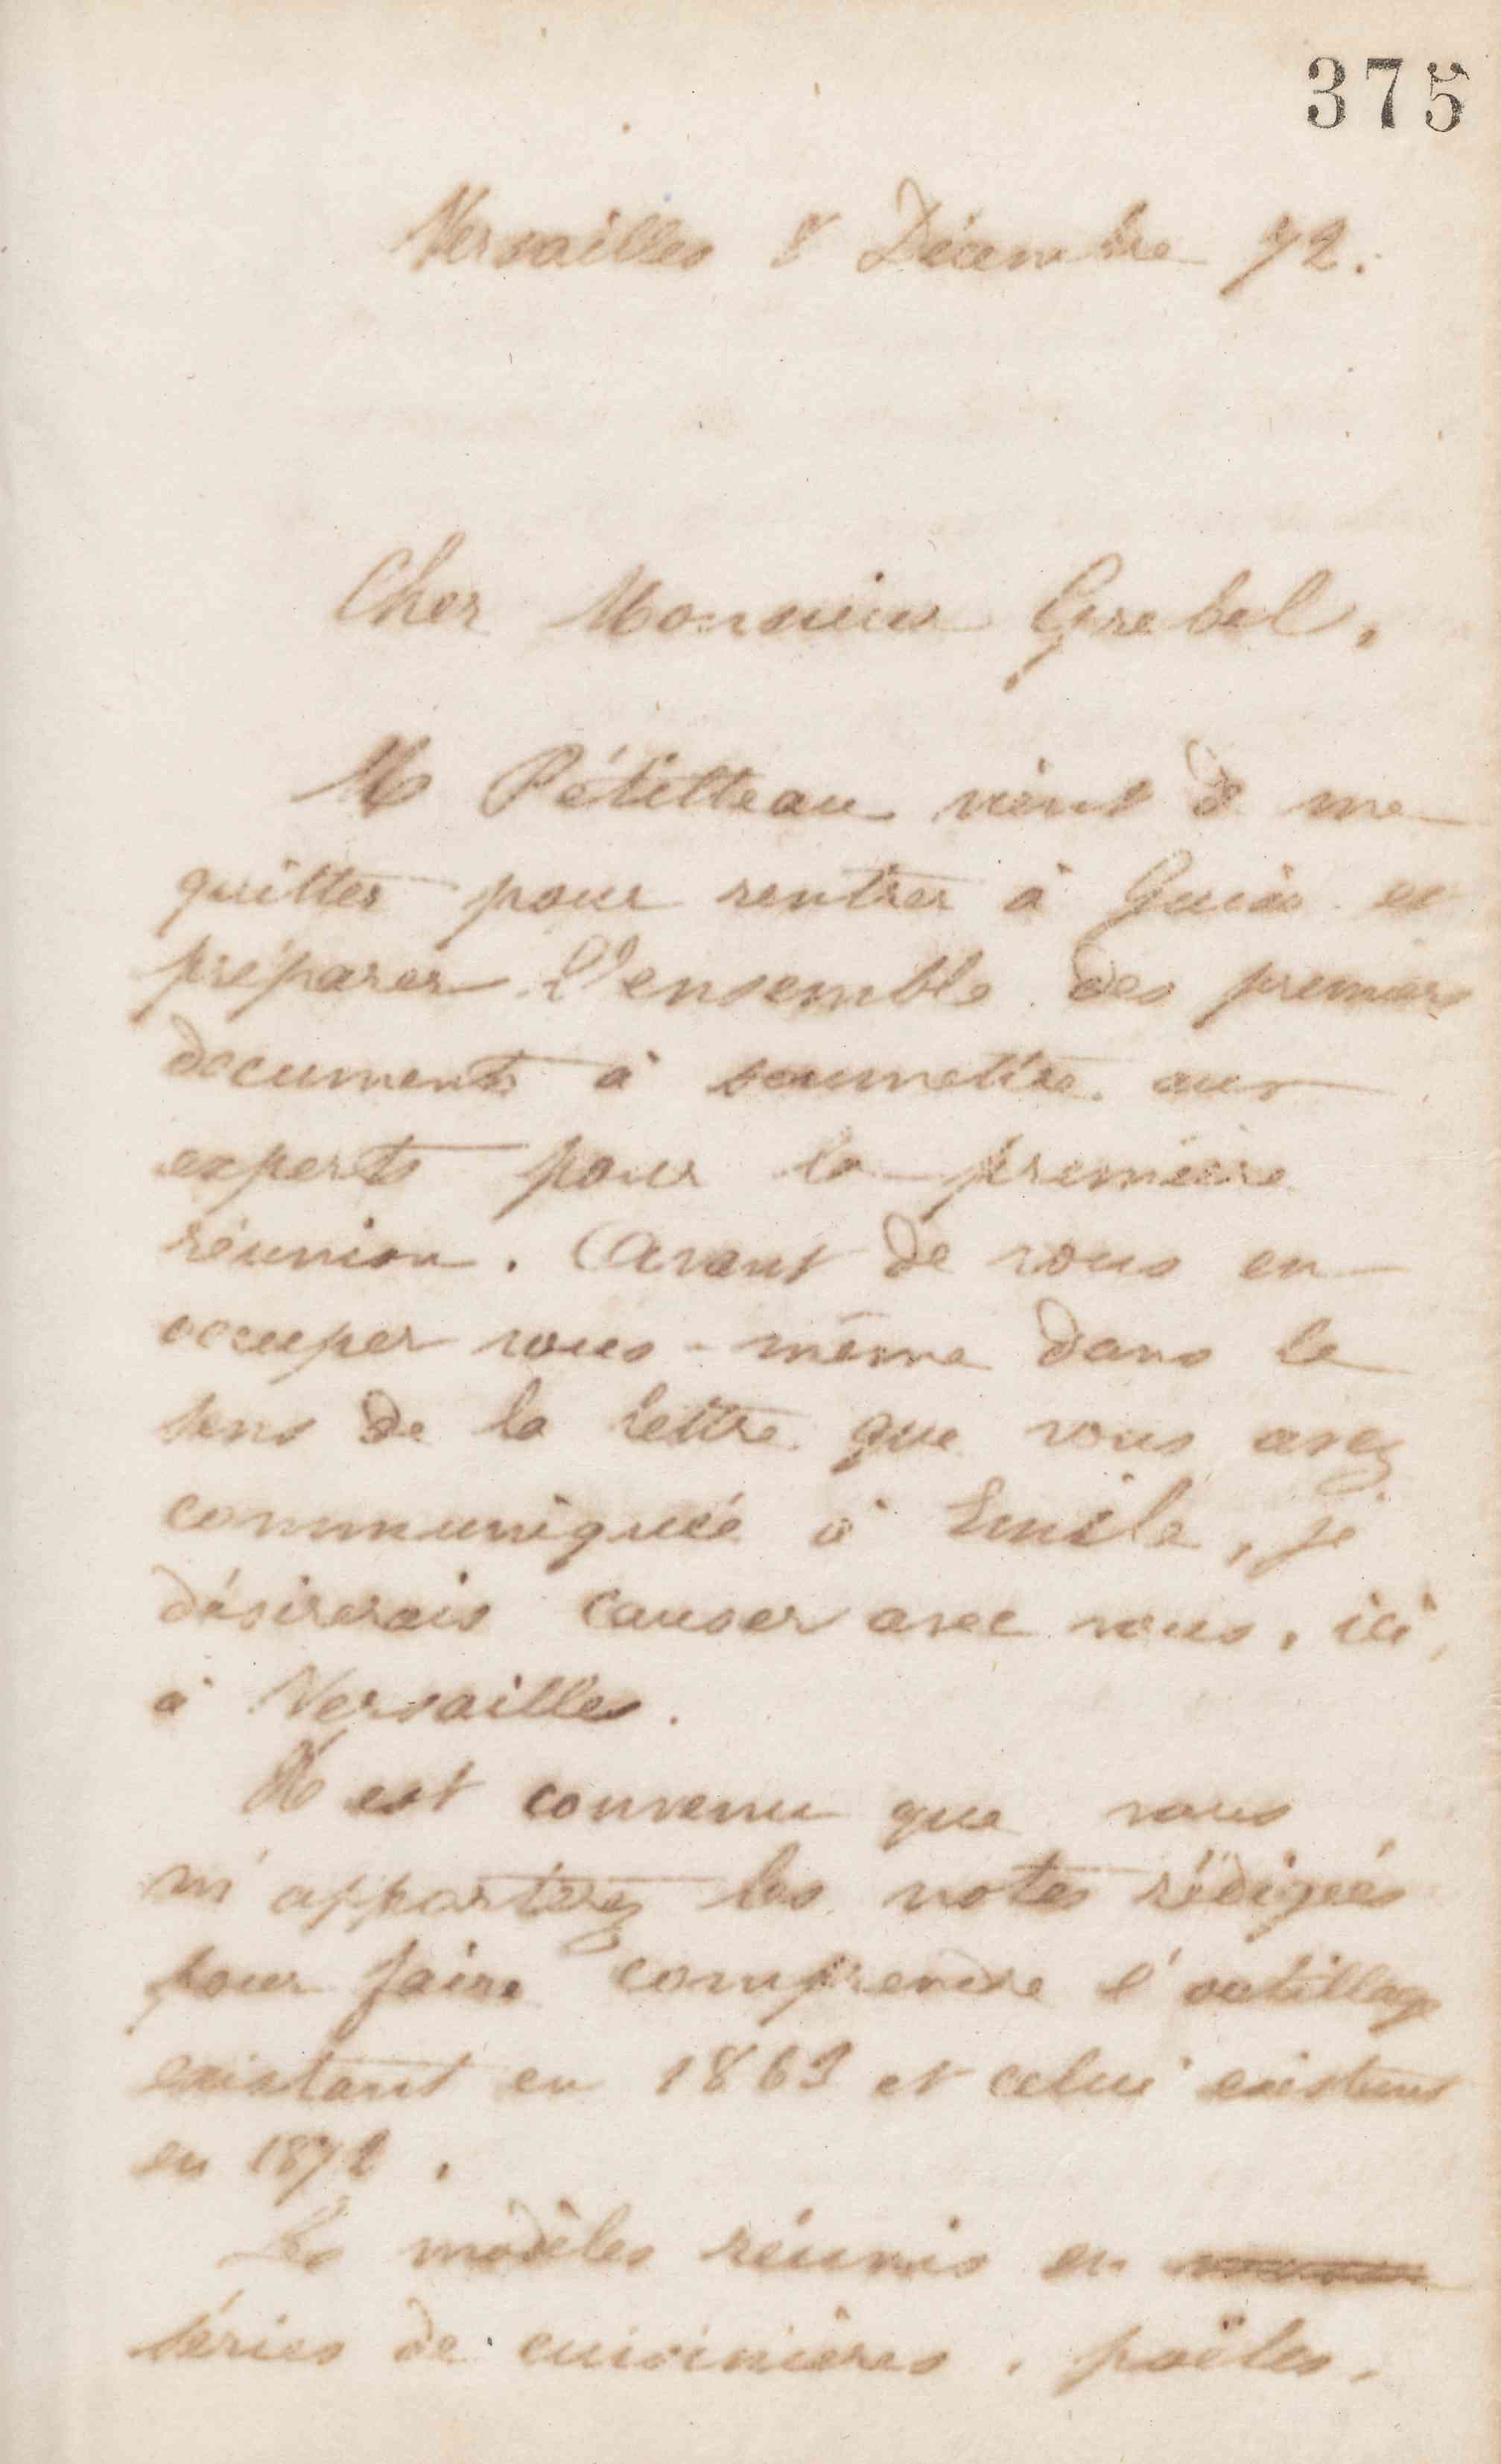 375
Versailles 8 Décembre 72.
Cher Monsieur Grebel,
M Pétilleau vient de me
quitter pour rentrer à Guise et
préparer l'ensemble des premiers
documents à soumettre aux
experts pour la première
réunion. Avant de vous en
occuper vous-même dans le
sens de la lettre que vous avez
communiquée à Emile, je
désirerais causer avec vous, ici,
à Versailles.
Il est convenu que vous
m'apporterez les notes rédigées
pour faire comprendre l'outillage
existant en 1863 et celui existant
en 1872.
Les modèles réunis en
séries de cuisinières, poëles,